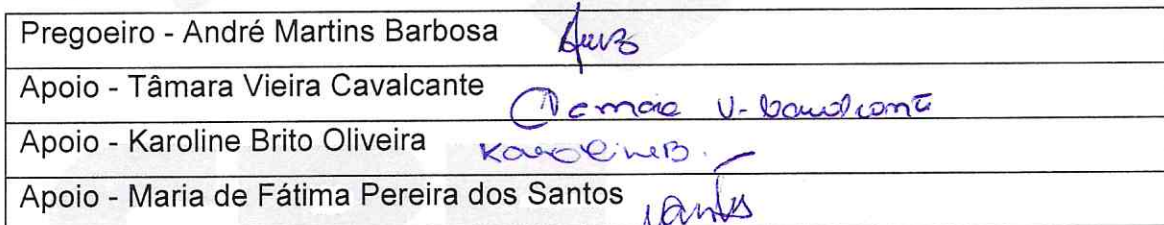 Pregoeiro - André Martins Barbosa
Apoio - Tâmara Vieira Cavalcante
Apoio - Karoline Brito Oliveira KarolineB.
Apoio - Maria de Fátima Pereira dos Santos